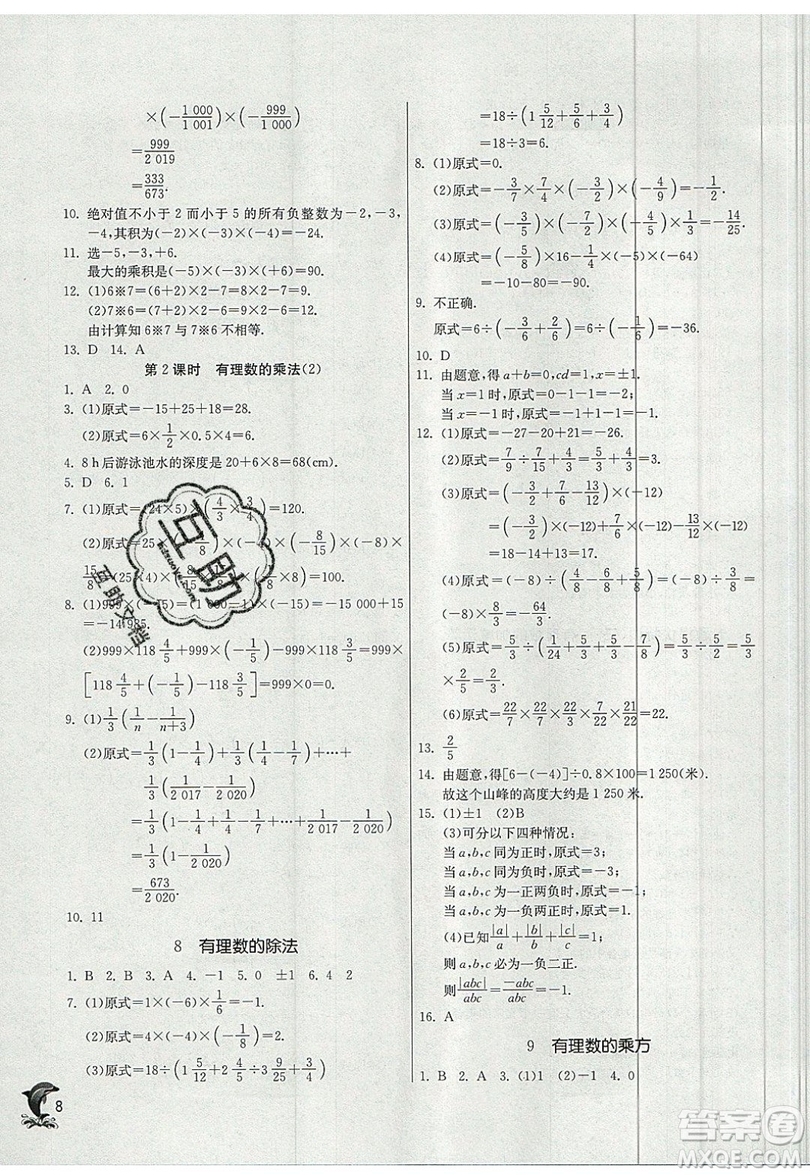 ×(−1 000/1 001)×(−999/1 000)
=999/2 019
=333/673.
10. 绝对值不小于 2 而小于 5 的所有负整数为−2,−3,
−4,其积为(−2)×(−3)×(−4)=−24.
11. 选−5,−3,+6.
最大的乘积是(−5)×(−3)×(+6)=90.
12. (1)6※7=(6+2)×2−7=8×2−7=9.
(2)7※6=(7+2)×2−6=9×2−6=12.
由计算知 6※7 与 7※6 不相等.
13. D 14. A
第 2 课时 有理数的乘法(2)
1. A 2. 0
3. (1)原式=−15+25+18=28.
(2)原式=6×1/2×0.5×4=6.
4. 8 h后游泳池水的深度是 20+6×8=68(cm).
5. D 6. 1
7. (1)原式=(24×5)×(4/3×3/4)=120.
(2)原式=25×
8/15)×(−8)×
15/8
×8)=100.
8. (1)原式=(−15)×(1 000−1)=(−15)×
=−14 985.
(2)999×118 4/5+999×(−1/5)−999×18 3/5=999×
[118 4/5+(−1/5)−118 3/5]=999×0=0.
9. (1)1/3(1/n−1/(n+3))
(2)原式=1/3(1−1/4)+1/3(1/4−1/7)+…+
1/3(1/2 017−1/2 020)
=1/3(1−1/4+1/4−1/7+…+1/2 017−1/2 020)
=1/3(1−1/2 020)
=673/2 020.
10. 11
8 有理数的除法
1. B 2. B 3. A 4. −1 5. 0 ±1 6. 4 2
7. (1)原式=1×(−6)×1/6=−1.
(2)原式=4×(−4)×(−1/8)=2.
(3)原式=18÷(1 5/12+2 5/4×3/9×3/25+3/4)
8
=18÷(1 5/12+5/6+3/4)
=18÷3=6.
8. (1)原式=0.
(2)原式=−3/7×7/4×(−3/2)×(−4/9)=−1/2.
(3)原式=(−14/5)×(−3/5)×(−1)×1/3=−14/25.
(4)原式=(−5/8)×16−(−1/4)×5×(−16)×
=−10−80=−90.
9. 不正确.
原式=6÷(−3/6+2/6)=6÷(−1/6)=−36.
10. D
11. 由题意,得 a+b=0,cd=1,x=±1.
当 x=1 时,原式=0−1−1=−2.
当 x=−1 时,原式=−1+1−1=−1.
12. (1)原式=−27−20+21=−26.
(2)原式=7/9÷7/15×1/3=7/9×15/7×1/3=5/9.
(3)原式=(−3/2+7/6−13/12)×(−12)
=(−3/2)×(−12)+7/6×(−12)+(−13/12)×(−12)
=18−14+13=17.
(4)原式=(−8)÷(4/8−5/8+4/8)=(−8)÷3/8=
(−8)×8/3=−64/3.
(5)原式=5/3÷(1/24+5/3+7/8)=5/3÷5/2=
5/3×2/5=2/3.
(6)原式=22/7×22/7×7/22×7/22×22=22.
13. 2/5
14. 由题意,得[6−(−4)]÷0.8×100=1 250(米).
故这个山峰的高度大约是 1 250 米.
15. (1)±1 (2)B
(3)可分以下四种情况:
当 a,b,c 同为正时,原式=3;
当 a,b,c 同为负时,原式=−3;
当 a,b,c 为一正两负时,原式=−1;
当 a,b,c 为一负两正时,原式=1.
(4)已知|a|/a+|b|/b+|c|/c=1,
则 a,b,c 必为一负二正.
则|abc|/abc=−abc/abc=−1.
16. A
9 有理数的乘方
1. B 2. A 3. (1)1 (2)−1 4. 0
互助
互助文档
答案圈
MXQE.COM